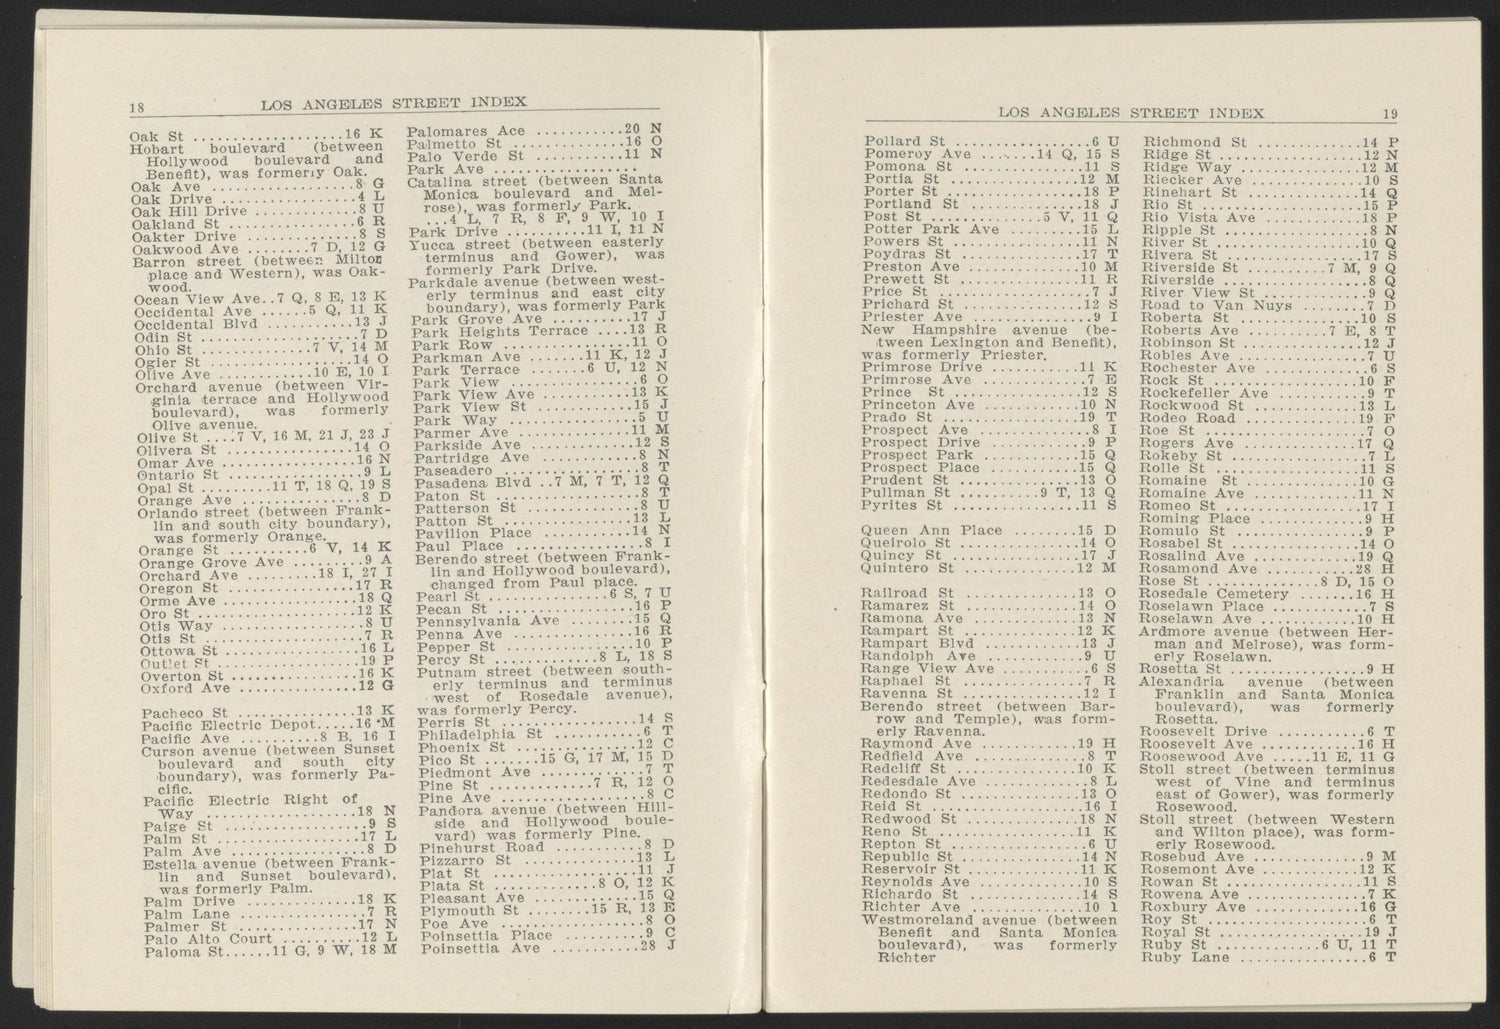 18 LOS ANGELES STREET INDEX
Oak St ..................16 K
Hobart boulevard (between
Hollywood boulevard and
Benefit), was formerly Oak.
Oak Ave .................8 G
Oak Drive .................4 L
Oak Hill Drive ............8 U
Oakland St ...............6 R
Oakter Drive .............8 S
Oakwood Ave ........7 D, 12 G
Barron street (between Milton
place and Western), was Oak-
wood.
Ocean View Ave..7 Q, 8 E, 13 K
Occidental Ave ......5 Q, 11 K
Occidental Blvd ............13 J
Odin St ....................7 D
Ohio St ..............7 V, 14 M
Ogier St .................14 O
Olive Ave ............10 E, 10 I
Orchard avenue (between Vir-
ginia terrace and Hollywood
boulevard), was formerly
Olive avenue.
Olive St ....7 V, 16 M, 21 J, 23 J
Olivera St ...............14 O
Omar Ave ................16 N
Ontario St .................9 L
Opal St .........11 T, 18 Q, 19 S
Orange Ave ...............8 D
Orlando street (between Frank-
lin and south city boundary),
was formerly Orange.
Orange St ..........6 V, 14 K
Orange Grove Ave .........9 A
Orchard Ave .........18 I, 27 I
Oregon St ................17 R
Orme Ave ................18 Q
Oro St ...................12 K
Otis Way ..................8 U
Otis St ....................7 R
Ottowa St ................16 L
Outlet St .................19 P
Overton St ...............16 K
Oxford Ave ..............12 G
Pacheco St ...............13 K
Pacific Electric Depot.....16 M
Pacific Ave .........8 B, 16 I
Curson avenue (between Sunset
boulevard and south city
boundary), was formerly Pa-
cific.
Pacific Electric Right of
Way ..................18 N
Paige St .................9 S
Palm St .................17 L
Palm Ave ................8 D
Estella avenue (between Frank-
lin and Sunset boulevard),
was formerly Palm.
Palm Drive ..............18 K
Palm Lane ................7 R
Palmer St ...............17 N
Palo Alto Court ..........12 L
Paloma St......11 G, 9 W, 18 M
Palomares Ace ...........20 N
Palmetto St .............16 O
Palo Verde St ...........11 N
Park Ave .................
Catalina street (between Santa
Monica boulevard and Mel-
rose), was formerly Park.
...4 L, 7 R, 8 F, 9 W, 10 I
Park Drive ..........11 I, 11 N
Yucca street (between easterly
terminus and Gower), was
formerly Park Drive.
Parkdale avenue (between west-
erly terminus and east city
boundary), was formerly Park
Park Grove Ave ..........17 J
Park Heights Terrace ....13 R
Park Row ................11 O
Parkman Ave .......11 K, 12 J
Park Terrace .......6 U, 12 N
Park View ...............6 O
Park View Ave ...........13 K
Park View St ............15 J
Park Way ................5 U
Parmer Ave ..............11 M
Parkside Ave ............12 S
Partridge Ave ............8 N
Paseadero ................8 T
Pasadena Blvd ..7 M, 7 T, 12 Q
Paton St .................8 T
Patterson St .............8 U
Patton St ...............13 L
Pavilion Place ...........14 N
Paul Place ...............8 I
Berendo street (between Frank-
lin and Hollywood boulevard),
changed from Paul place.
Pearl St ..............6 S, 7 U
Pecan St ................16 P
Pennsylvania Ave .........15 Q
Penna Ave ...............16 R
Pepper St ...............10 P
Percy St ............8 L, 18 S
Putnam street (between south-
erly terminus and terminus
west of Rosedale avenue),
was formerly Percy.
Perris St ................14 S
Philadelphia St ..........6 T
Phoenix St ..............12 C
Pico St .......15 G, 17 M, 15 D
Piedmont Ave ............7 T
Pine St .............7 R, 12 O
Pine Ave .................8 C
Pandora avenue (between Hill-
side and Hollywood boule-
vard) was formerly Pine.
Pinehurst Road ...........8 D
Pizzarro St ..............13 L
Plat St ..................11 J
Plata St ............8 O, 12 K
Pleasant Ave .............15 Q
Plymouth St ........15 R, 13 E
Poe Ave ..................8 O
Poinsettia Place ..........9 C
Poinsettia Ave ..........28 J
LOS ANGELES STREET INDEX 19
Pollard St .................6 U
Pomeroy Ave .......14 Q, 15 S
Pomona St ...............11 S
Portia St ................12 M
Porter St ................18 P
Portland St ..............18 J
Post St .............5 V, 11 Q
Potter Park Ave .........15 L
Powers St ...............11 N
Poydras St ..............17 T
Preston Ave .............10 M
Prewett St ..............11 R
Price St ..................7 J
Prichard St ..............12 S
Priester Ave ..............9 I
New Hampshire avenue (be-
tween Lexington and Benefit),
was formerly Priester.
Primrose Drive ...........11 K
Primrose Ave .............7 E
Prince St ................12 S
Princeton Ave ...........10 N
Prado St .................19 T
Prospect Ave ..............8 I
Prospect Drive ............9 P
Prospect Park ............15 Q
Prospect Place ...........15 Q
Prudent St ...............13 O
Pullman St ..........9 T, 13 Q
Pyrites St ...............11 S
Queen Ann Place .........15 D
Queirolo St ..............14 O
Quincy St ...............17 J
Quintero St ..............12 M
Railroad St ..............13 O
Ramarez St ..............14 O
Ramona Ave .............13 N
Rampart St ..............12 K
Rampart Blvd ............13 J
Randolph Ave ............9 U
Range View Ave ..........6 S
Raphael St ...............7 R
Ravenna St ..............12 I
Berendo street (between Bar-
row and Temple), was form-
erly Ravenna.
Raymond Ave ............19 H
Redfield Ave ..............8 T
Redcliff St ...............10 K
Redesdale Ave ............8 L
Redondo St ..............13 O
Reid St ..................16 I
Redwood St ..............18 N
Reno St .................11 K
Repton St ................6 U
Republic St ..............14 N
Reservoir St .............11 K
Reynolds Ave ............10 S
Richardo St ..............14 S
Richter Ave ..............10 1
Westmoreland avenue (between
Benefit and Santa Monica
boulevard), was formerly
Richter
Richmond St .............14 P
Ridge St .................12 N
Ridge Way ...............12 M
Riecker Ave ..............10 S
Rinehart St ..............14 Q
Rio St ...................15 P
Rio Vista Ave ............18 P
Ripple St .................8 N
River St .................10 Q
Rivera St ................17 S
Riverside St .........7 M, 9 Q
Riverside .................8 Q
River View St ............9 Q
Road to Van Nuys ........7 D
Roberta St ...............10 S
Roberts Ave ..........7 E, 8 T
Robinson St ..............12 J
Robles Ave ...............7 U
Rochester Ave ............6 S
Rock St ..................10 F
Rockefeller Ave ...........9 T
Rockwood St .............13 L
Rodeo Road ..............19 F
Roe St ...................7 O
Rogers Ave ..............17 Q
Rokeby St ................7 L
Rolle St .................11 S
Romaine St ..............10 G
Romaine Ave .............11 N
Romeo St ................17 I
Roming Place .............9 H
Romulo St ................9 P
Rosabel St ...............14 O
Rosalind Ave .............19 Q
Rosamond Ave ...........28 H
Rose St .............8 D, 15 O
Rosedale Cemetery .......16 H
Roselawn Place ...........7 S
Roselawn Ave ............10 H
Ardmore avenue (between Her-
man and Melrose), was form-
erly Roselawn.
Rosetta St ................9 H
Alexandria avenue (between
Franklin and Santa Monica
boulevard), was formerly
Rosetta.
Roosevelt Drive ...........6 T
Roosevelt Ave ............16 H
Roosewood Ave .....11 E, 11 G
Stoll street (between terminus
west of Vine and terminus
east of Gower), was formerly
Rosewood.
Stoll street (between Western
and Wilton place), was form-
erly Rosewood.
Rosebud Ave .............9 M
Rosemont Ave ............12 K
Rowan St ................11 S
Rowena Ave ..............7 K
Roxbury Ave .............16 G
Roy St ...................6 T
Royal St .................19 J
Ruby St .............6 U, 11 T
Ruby Lane ...............6 T